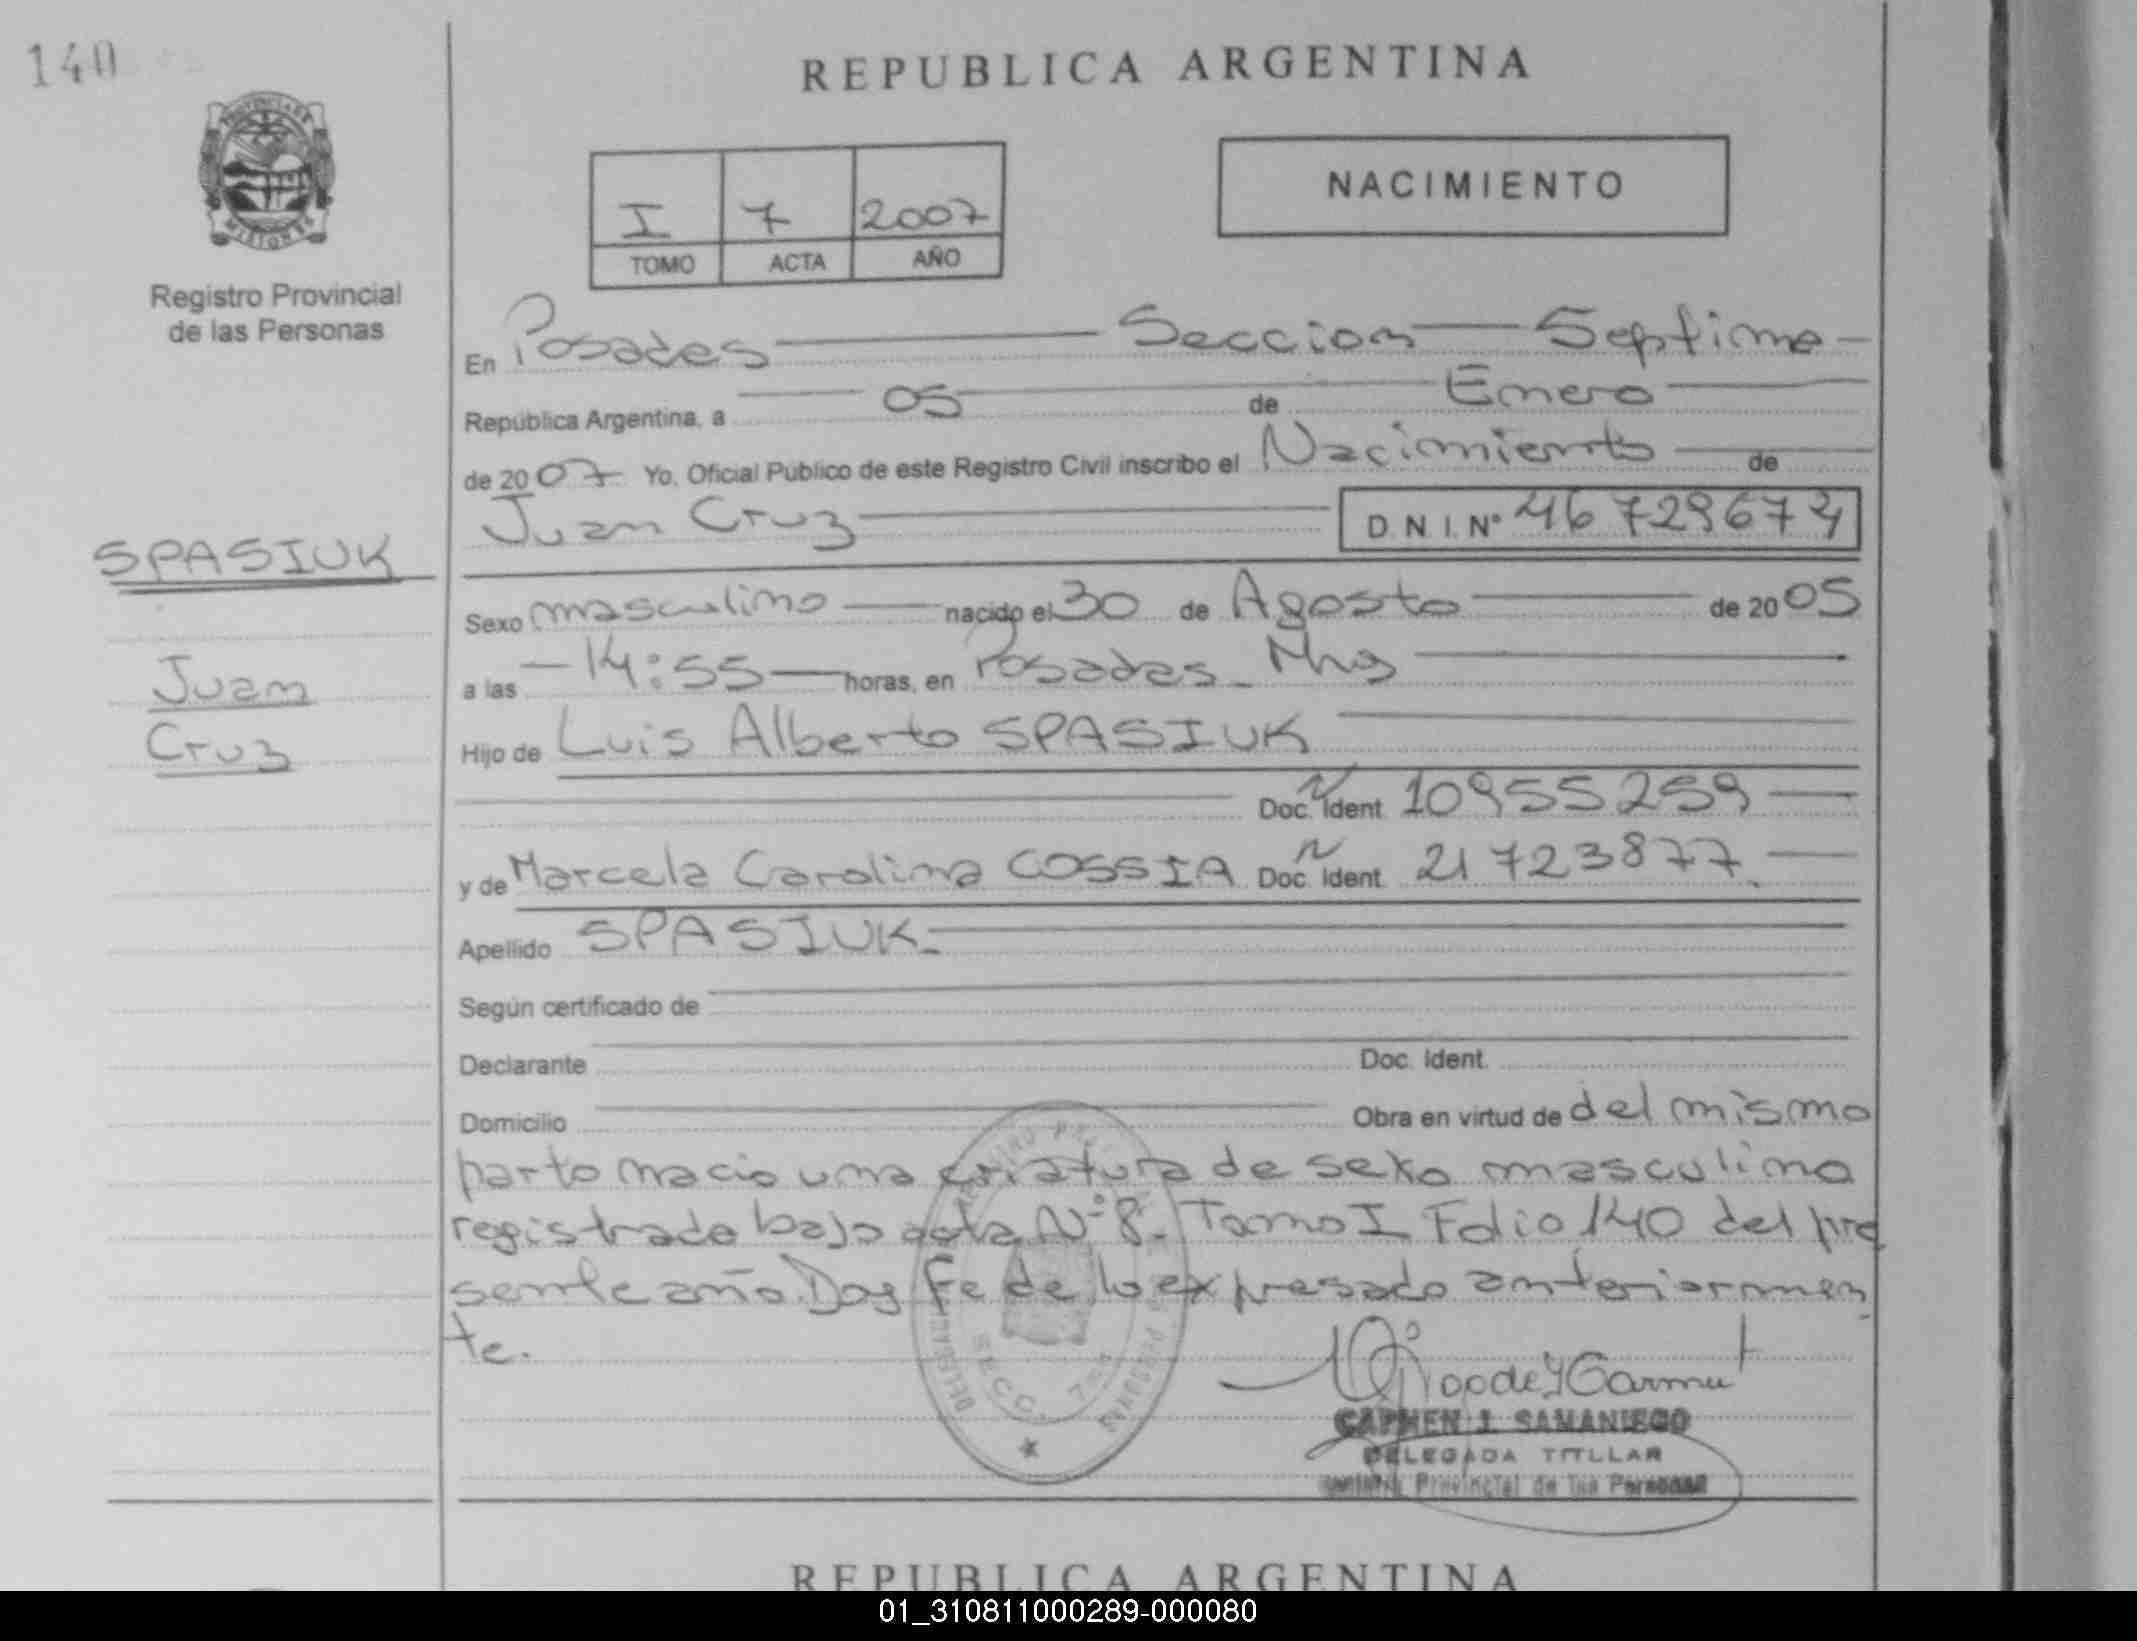 140
REPUBLICA ARGENTINA
NACIMIENTO
I 7 2007
TOMO ACTA AÑO
MISIONES
Registro Provincial
de las Personas
En Posadas Seccion Septima
República Argentina, a 05 de Enero
de 2007 Yo, Oficial Público de este Registro Civil inscribo el Nacimiento de
Juan Cruz D.N.I. Nº 46729674
SPASIUK
Juan
Cruz
Sexo masculino nacido el 30 de Agosto de 2005
a las 14:55 horas, en Posadas - Mns
Hijo de Luis Alberto SPASIUK
Doc. Ident. 10955259
y de Marcela Carolina COSSIA Doc. Ident. 21723877.
Apellido SPASIUK.
Según certificado de
Declarante Doc. Ident.
Domicilio Obra en virtud de del mismo
parto nacio una criatura de sexo masculino
registrada bajo acta Nº 8. Tomo I Folio 140 del pre
sente año. Doy fe de lo expresado anteriormen
te.
SECC. 7ma
CARMEN J. SAMANIEGO
DELEGADA TITULAR
Provincial de las Personas
REPUBLICA ARGENTINA
01_310811000289-000080